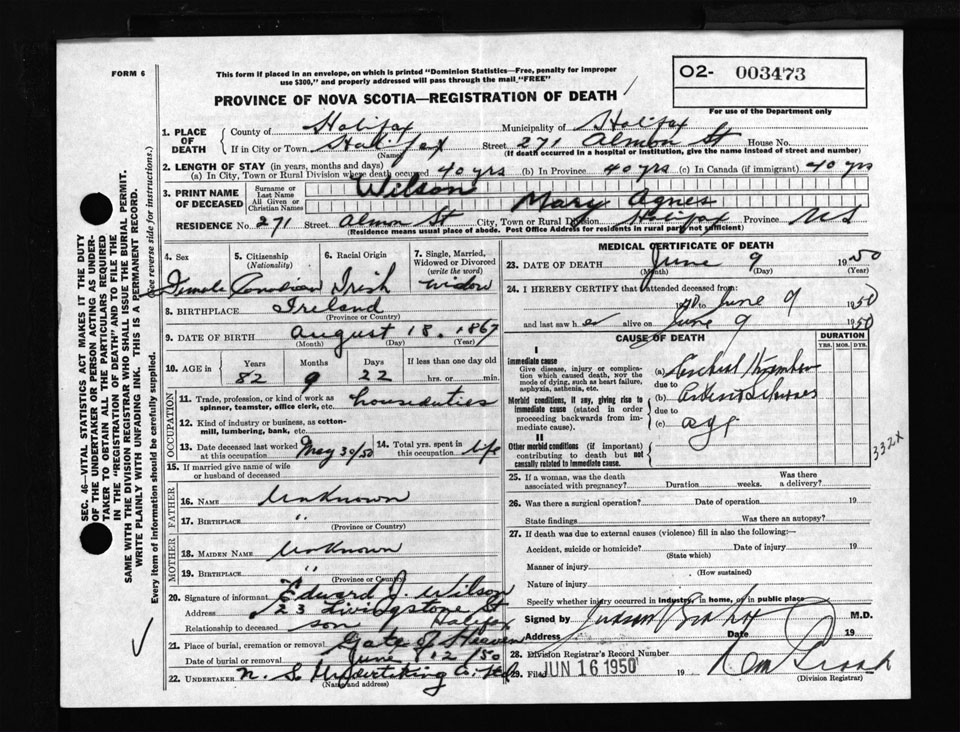 FORM 6
This form if placed in an envelope, on which is printed "Dominion Statistics—Free, penalty for improper
use $300," and properly addressed will pass through the mail "FREE"
O2- 003473
For use of the Department only
PROVINCE OF NOVA SCOTIA—REGISTRATION OF DEATH
1. PLACE OF DEATH County of Halifax Municipality of Halifax
If in City or Town Halifax (Name) Street 271 Almon St House No.
(If death occurred in a hospital or institution, give the name instead of street and number)
2. LENGTH OF STAY (in years, months and days)
(a) In City, Town or Rural Division where death occurred 40 yrs (b) In Province 40 yrs (c) In Canada (if immigrant) 40 yrs
3. PRINT NAME OF DECEASED Surname or Last Name Wilson
All Given or Christian Names Mary Agnes
RESIDENCE No. 271 Street Almon St City, Town or Rural Division Halifax Province NS
(Residence means usual place of abode. Post Office Address for residents in rural parts not sufficient)
4. Sex 5. Citizenship (Nationality) 6. Racial Origin 7. Single, Married, Widowed or Divorced (write the word)
Female Canadian Irish widow
8. BIRTHPLACE Ireland
(Province or Country)
9. DATE OF BIRTH August 18. 1867
(Month) (Day) (Year)
10. AGE in Years Months Days If less than one day old
82 9 22 hrs. or min.
OCCUPATION
11. Trade, profession, or kind of work as spinner, teamster, office clerk, etc. houseduties
12. Kind of industry or business, as cotton-mill, lumbering, bank, etc.
13. Date deceased last worked at this occupation May 30/50 14. Total yrs. spent in this occupation life
15. If married give name of wife or husband of deceased
FATHER
16. NAME Unknown
17. BIRTHPLACE "
(Province or Country)
MOTHER
18. MAIDEN NAME Unknown
19. BIRTHPLACE "
(Province or Country)
20. Signature of informant Edward J. Wilson
Address 23 Livingstone St
Relationship to deceased son Halifax
21. Place of burial, cremation or removal Gate of Heaven
Date of burial or removal June 12/50
22. UNDERTAKER N. S. Undertaking Co. Ltd
(Name and address)
MEDICAL CERTIFICATE OF DEATH
23. DATE OF DEATH June 9 1950
(Month) (Day) (Year)
24. I HEREBY CERTIFY that I attended deceased from:
to June 9 1950
and last saw her alive on June 9 1950
CAUSE OF DEATH DURATION
YRS. MOS. DYS.
I
Immediate cause
Give disease, injury or complication which caused death, not the mode of dying, such as heart failure, asphyxia, asthenia, etc.
(a) Cerebral Thrombosis
due to
Morbid conditions, if any, giving rise to immediate cause (stated in order proceeding backwards from immediate cause).
(b) Arteriosclerosis
due to
(c) age
II
Other morbid conditions (if important) contributing to death but not causally related to immediate cause.
332X
25. If a woman, was the death associated with pregnancy? Duration weeks. Was there a delivery?
26. Was there a surgical operation? Date of operation 19
State findings Was there an autopsy?
27. If death was due to external causes (violence) fill in also the following:—
Accident, suicide or homicide? Date of injury 19
(State which)
Manner of injury
(How sustained)
Nature of injury
Specify whether injury occurred in industry, in home, or in public place
Signed by M.D.
Address Date 19
28. Division Registrar's Record Number
29. Filed JUN 16 1950 19
(Division Registrar)
SEC. 46—VITAL STATISTICS ACT MAKES IT THE DUTY
OF THE UNDERTAKER OR PERSON ACTING AS UNDERTAKER
TO OBTAIN ALL THE PARTICULARS REQUIRED
IN THE "REGISTRATION OF DEATH" AND TO FILE THE
SAME WITH THE DIVISION REGISTRAR WHO SHALL ISSUE THE BURIAL PERMIT.
WRITE PLAINLY WITH UNFADING INK. THIS IS A PERMANENT RECORD.
Every item of information should be carefully supplied. (See reverse side for instructions.)